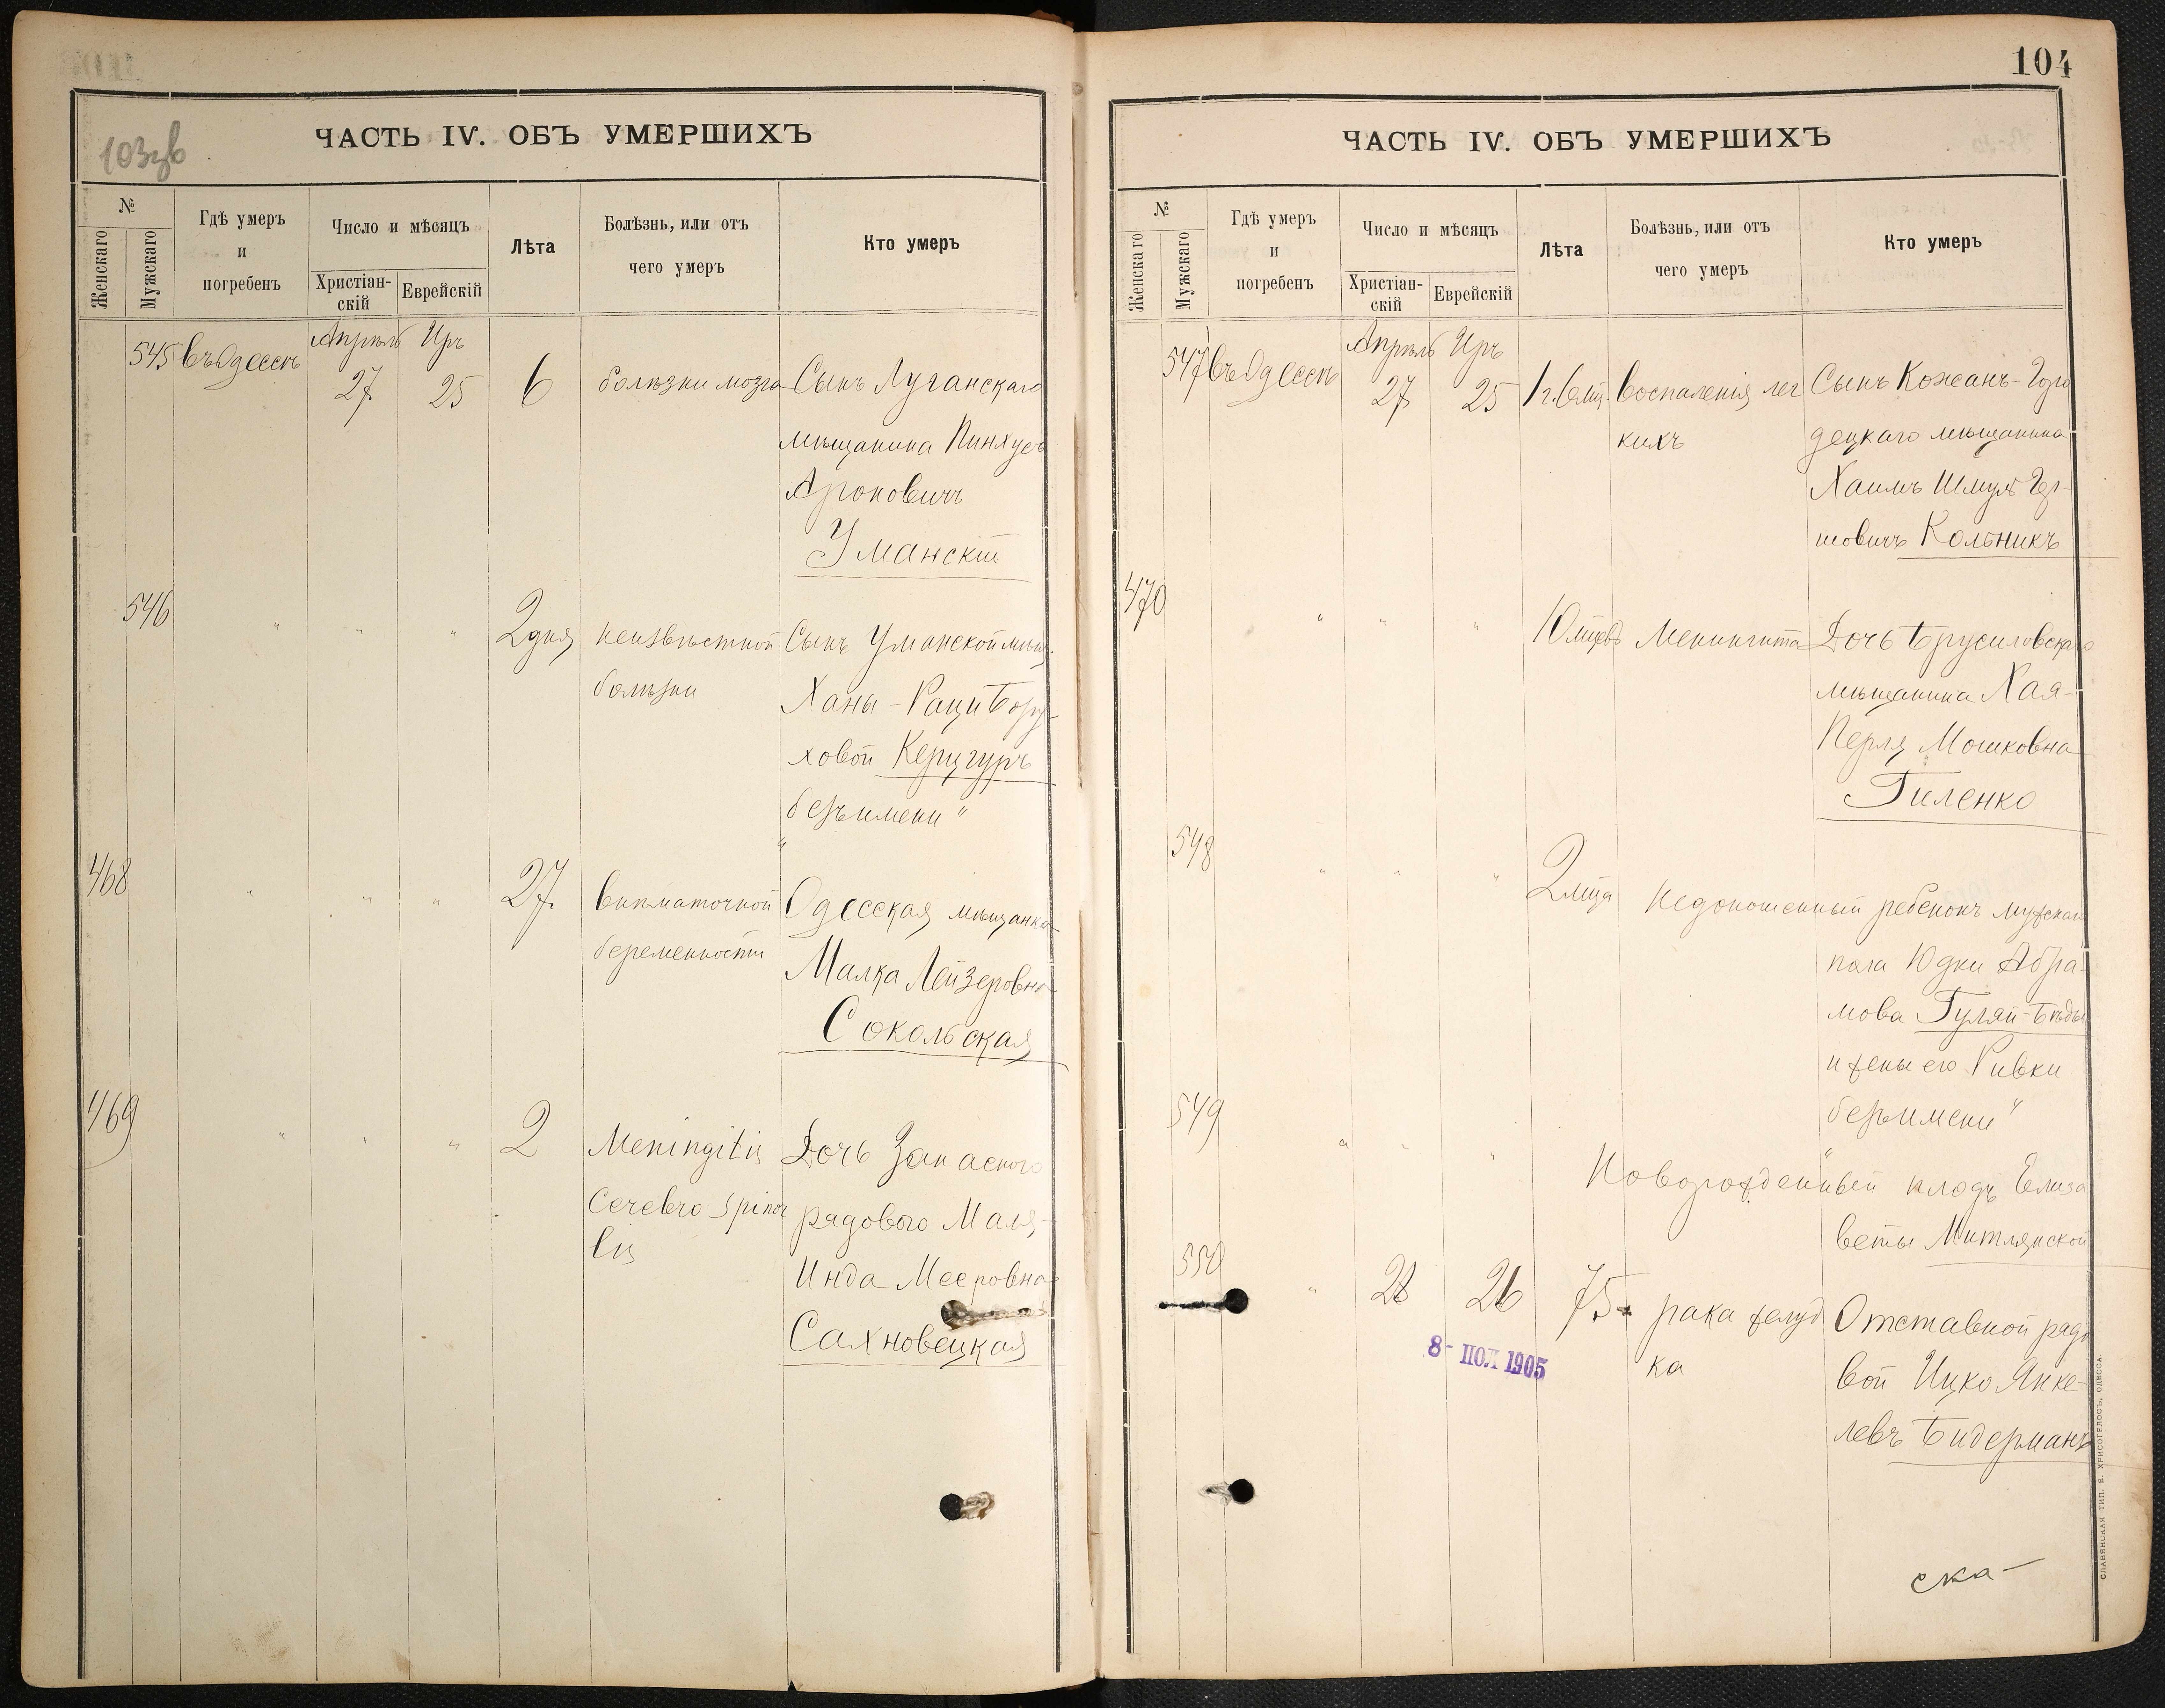 103зв
ЧАСТЬ IV. ОБЪ УМЕРШИХЪ
№
Женскаго
Мужскаго
Гдѣ умеръ
и
погребенъ
Число и мѣсяцъ
Христіан-
скій
Еврейскій
Лѣта
Болѣзнь, или отъ
чего умеръ
Кто умеръ
545 въ Одессѣ Апрѣль Иръ
27 25 6 болѣзни мозга Сынъ Луганскаго
мѣщанина Пинхусъ
Ароновичъ
Уманскій
546 " " " 2 дня неизвѣстной Сынъ Уманской мѣщ.
болѣзни Ханы-Раци Бору-
ховой Керцгуръ
"безъ имени"
468 " " " 27 внѣматочной Одесская мѣщанка
беременности Малка Лейзеровна
Сокольская
469 " " " 2 Meningitis Дочь Запасного
Cerebro Spina рядового Маля-
lis Инда Мееровна
Сахновецкая
104
ЧАСТЬ IV. ОБЪ УМЕРШИХЪ
№
Женскаго
Мужскаго
Гдѣ умеръ
и
погребенъ
Число и мѣсяцъ
Христіан-
скій
Еврейскій
Лѣта
Болѣзнь, или отъ
чего умеръ
Кто умеръ
547 въ Одессѣ Апрѣль Иръ
27 25 1 г. 6 мц. воспаленія лег Сынъ Кожанъ-Горо
кихъ децкаго мѣщанина
Хаимъ Шмуль Гер-
шовичъ Кольникъ
470 " " " 10 мцевъ Менингита Дочь Брусиловскаго
мѣщанина Хая-
Перля Мошковна
Гиленко
548 " " " 2 мца Недоношенный ребенокъ мужскаго
пола Юдки Абра-
мова Гуляй-Бѣды
и жены его Ривки
"безъ имени"
549 " " " Новорожденный плодъ Елиза
веты Митлянской
550 " 28 26 75 рака желуд Отставной рядо
ка вой Ицко Янке-
левъ Бидерманъ
8- ІЮЛ 1905
ска-
СЛАВЯНСКАЯ ТИП. Е. ХРИСОГЕЛОСЪ, ОДЕССА.